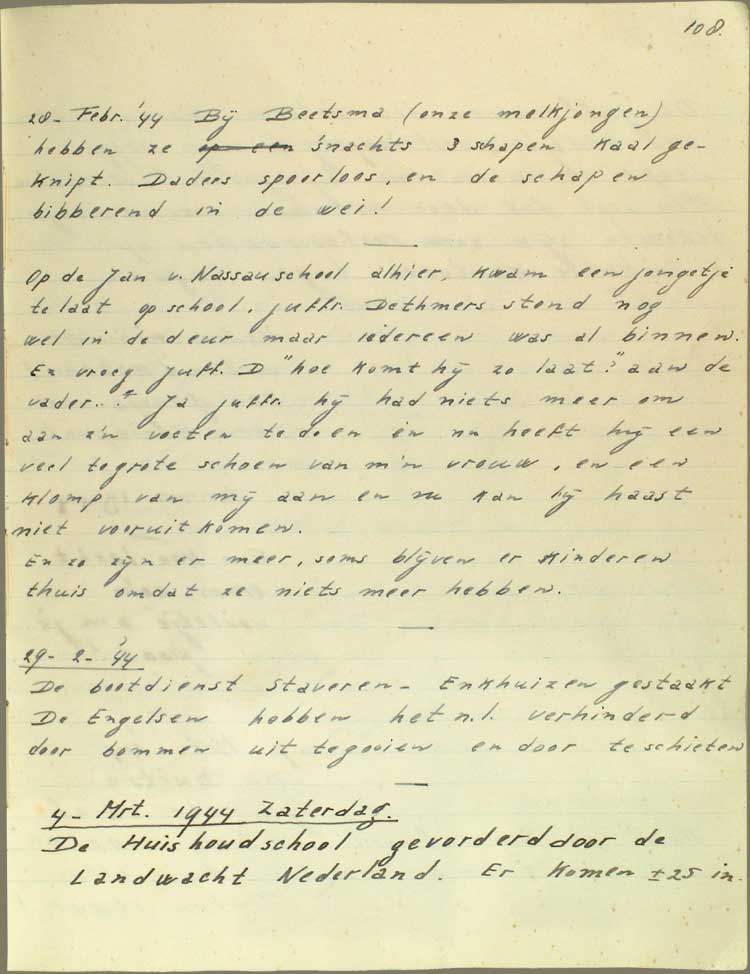 108.
28- Febr. '44 Bij Beetsma (onze melkjongen)
hebben ze op een 'snachts 3 schapen kaal ge-
knipt. Daders spoorloos, en de schapen
bibberend in de wei!
Op de Jan v. Nassauschool alhier, kwam een jongetje
te laat op school. Juffr. Dethmers stond nog
wel in de deur maar iedereen was al binnen.
En vroeg Juff. D "hoe komt hij zo laat?" aan de
vader..? Ja juffr. hij had niets meer om
aan z'n voeten te doen en nu heeft hij een
veel te grote schoen van m'n vrouw, en een
klomp van mij aan en nu kan hij haast
niet vooruit komen.
En zo zijn er meer, soms blijven er kinderen
thuis omdat ze niets meer hebben.
29- 2- '44
De bootdienst Staveren - Enkhuizen gestaakt
De Engelsen hebben het n.l. verhinderd
door bommen uit te gooien en door te schieten
4- Mrt. 1944 Zaterdag.
De Huishoudschool gevorderd door de
Landwacht Nederland. Er komen ± 25 in.